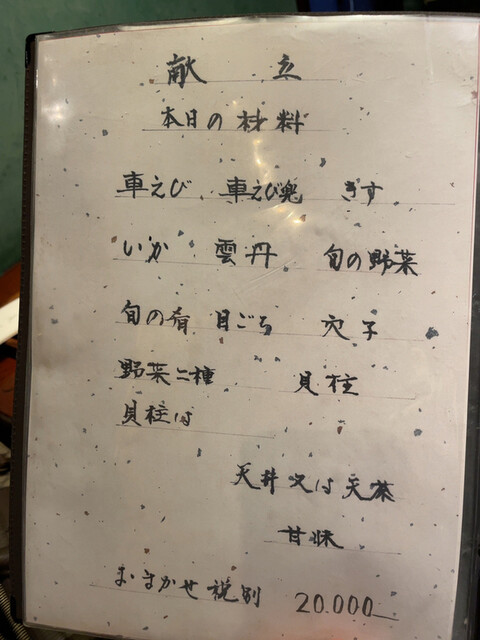 献立
本日の材料
車えび 車えび兜 きす
いか 雲丹 旬の野菜
旬の肴 目ごち 穴子
野菜二種 貝柱
貝柱は
天丼又は天茶
甘味
おまかせ税別 20.000